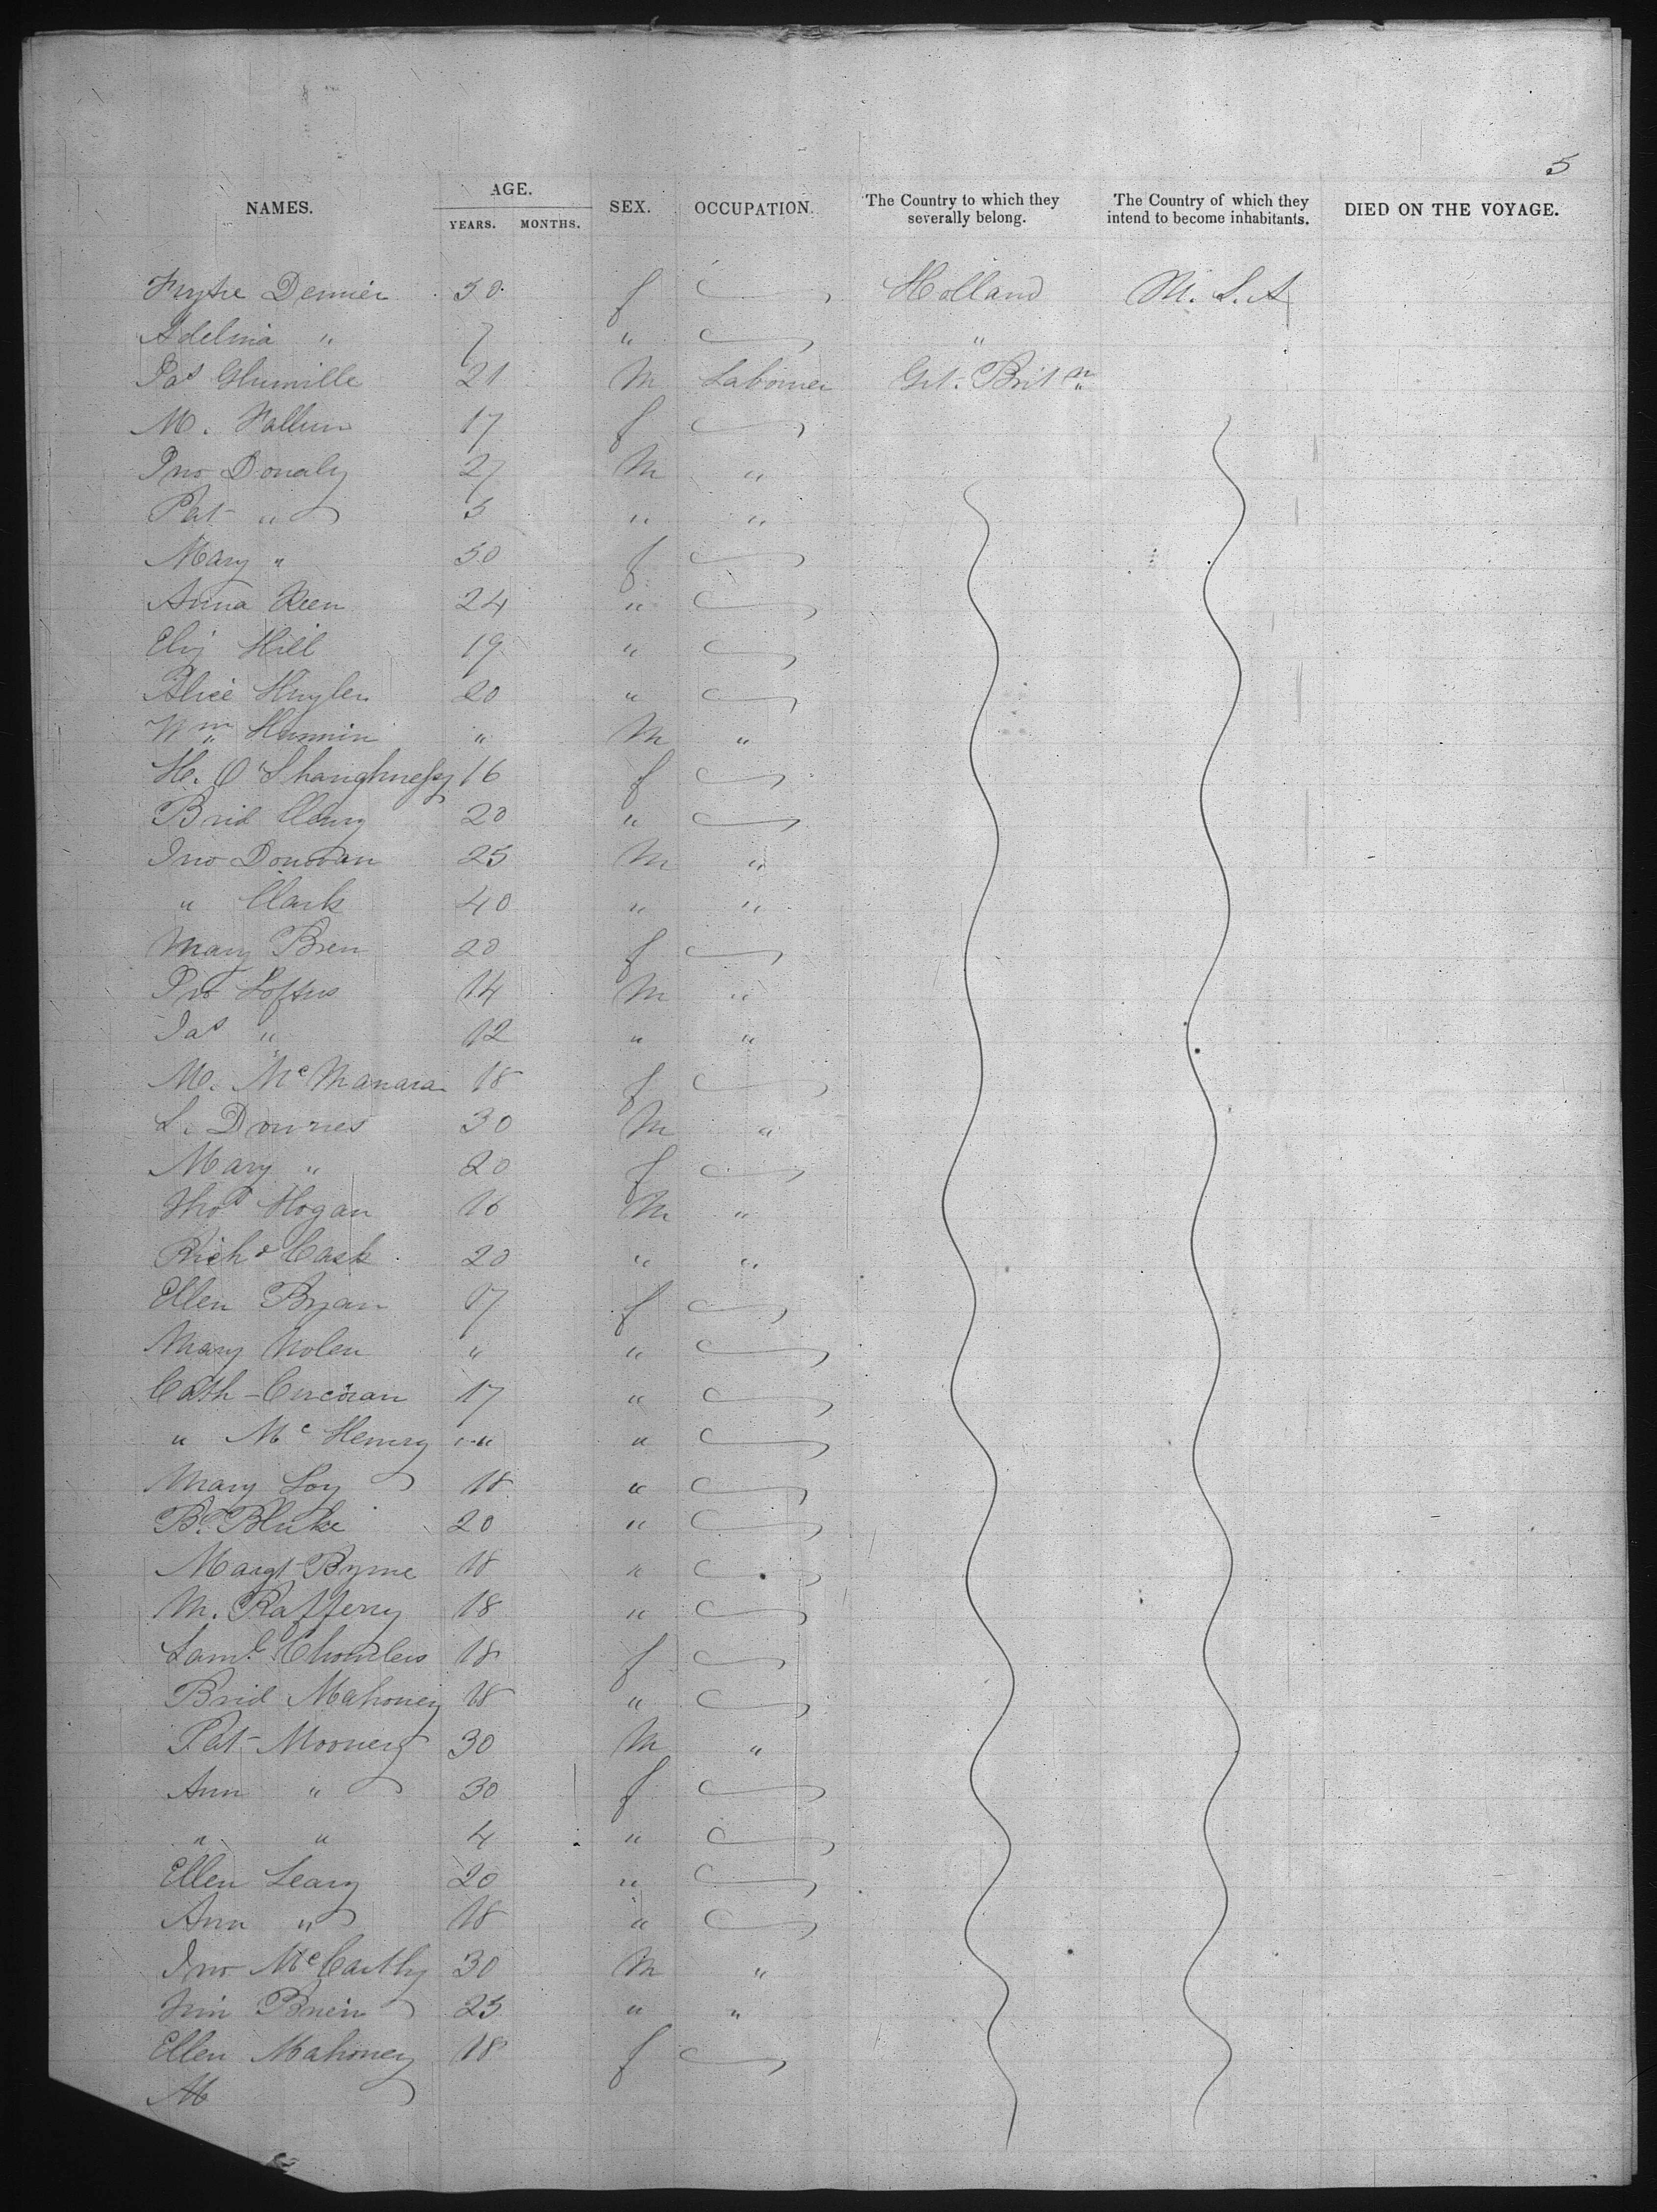 5
NAMES. AGE. SEX. OCCUPATION. The Country to which they severally belong. The Country of which they intend to become inhabitants. DIED ON THE VOYAGE.
YEARS. MONTHS.
Dennier 50 f Holland U.S.A
Adelina " 7 " "
Pas 21 M Laborer Grt. Britn
M. Fallun 17 f
Jno Donaly 27 M "
Pat " 5 " "
Mary " 50 f
Anna Keen 24 "
Eliz Hill 19 "
Alice Hughlen 20 "
Wm Hannin " M "
H. O'Shaughnessy 16 f
Brid Cleary 20 "
Jno Donovan 25 M "
" Clark 40 " "
Mary Bren 20 f
Jno Loftus 14 M "
Jas " 12 " "
M. McManara 18 f
S. Downes 30 M "
Mary " 20 f
Thos Hogan 16 M "
Richd Cask 20 " "
Ellen Bryan 17 f
Mary Nolen " "
Cath Corcoran 17 "
" McHenry " "
Mary Loy 18 "
Bd. Blake 20 "
Margt Byrne 18 "
M. Rafferry 18 "
Saml. 18 f
Brid Mahoney 18 "
Pat Mooney 30 M "
Ann " 30 f
" " 4 "
Ellen Leary 20 "
Ann " 18 "
Jno McCarthy 30 M "
Tim Brien 25 " "
Ellen Mahoney 18 f
M